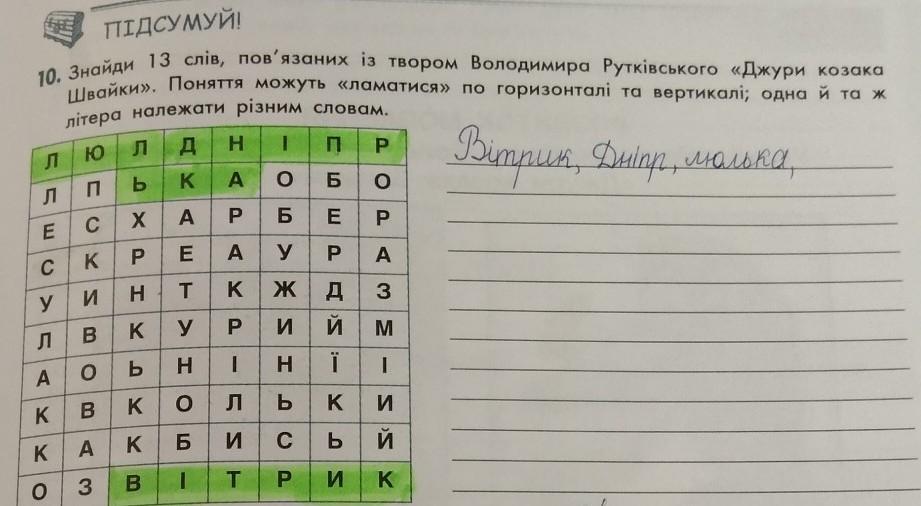 ПІДСУМУЙ!
10. Знайди 13 слів, пов'язаних із твором Володимира Рутківського «Джури козака
Швайки». Поняття можуть «ламатися» по горизонталі та вертикалі; одна й та ж
літера належати різним словам.
Л Ю Л Д Н І П Р
Л П Ь К А О Б О
Е С Х А Р Б Е Р
С К Р Е А У Р А
У И Н Т К Ж Д З
Л В К У Р И Й М
А О Ь Н І Н Ї І
К В К О Л Ь К И
К А К Б И С Ь Й
О З В І Т Р И К
Вітрик, Дніпр, люлька,